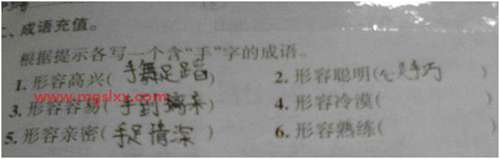 二、成语充值。
根据提示各写一个含“手”字的成语。
1. 形容高兴(手舞足蹈) 2. 形容聪明(心灵手巧)
www.mgslxx.com
3. 形容容易(手到擒来) 4. 形容冷漠( )
5. 形容亲密(手足情深) 6. 形容熟练( )